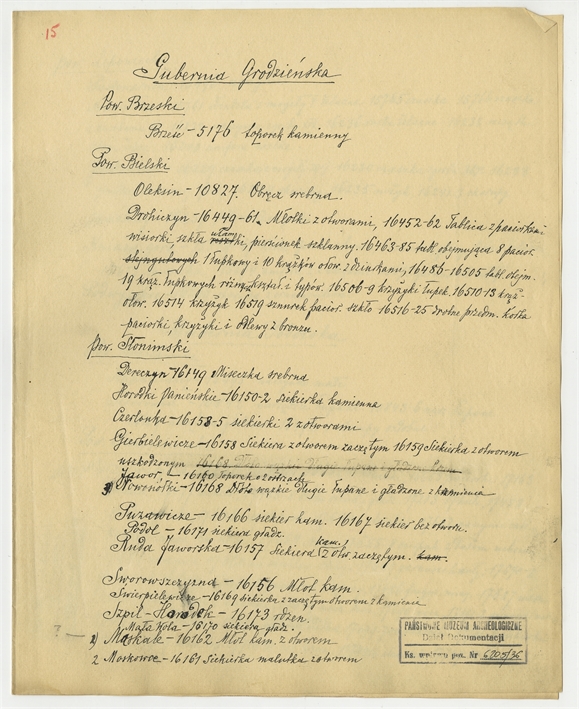 15
Gubernia Grodzieńska
Pow. Brzeski
Brześć – 5176 toporek kamienny
Pow. Bielski
Oleksin – 10827. Obręcz srebrna.
Drohiczyn – 16449-61. Młotki z otworami, 16452-62 Tablica z paciorkami
wisiorki, szkła ułamki, pierścionek szklanny. 16463-85 tabl. obejmująca 8 pacior.
1 łupkowy i 10 krążków ołow. z dziurkami, 16486-16505 tabl. obejm.
19 krąż. łupkowych różnej kształ. i typów. 16506-9 krzyżyki łupek. 16510-13 krąż.
ołow. 16514 krzyżyk 16519 sznurek pacior. szkło 16516-25 drobne przedm. kośćia
paciorki, krzyżyki i odlewy z bronzu.
Pow. Słonimski
Dereczyn – 16149 Miseczka srebrna
Horodki Panieńskie – 16150-2 siekierka kamienna
Czerlonka – 16158-5 siekierki 2 z otworami
Gierbielewicze – 16158 Siekiera z otworem zaczętym 16159 Siekierka z otworem
uszkodzonym
Jawor – 16160 Toporek
Nowosiółki – 16168 Dłóto wązkie długie łupane i gładzone z kamienia
Puzawicze – 16166 siekier kam. 16167 siekier bez otworu.
Podol – 16171 siekiera gładz.
Ruda Jaworska – 16157 Siekiera kam. 1 z otw. zaczętym. kam.
Sworowszczyzna – 16156 Młot kam.
Świerpielewicze – 16169 siekierka z zaczętym otworem z kamienia
Szpil-Harodek – 16173 rdzeń.
Mała Kola – 16170 siekiera gładz.
? — 2) Maskale – 16162 Młot kam. z otworem
2 Moskowce – 16161 Siekierka malutka z otworem
PAŃSTWOWE MUZEUM ARCHEOLOGICZNE
Dział Dokumentacji
Ks. wpływu poz. Nr 6205/36